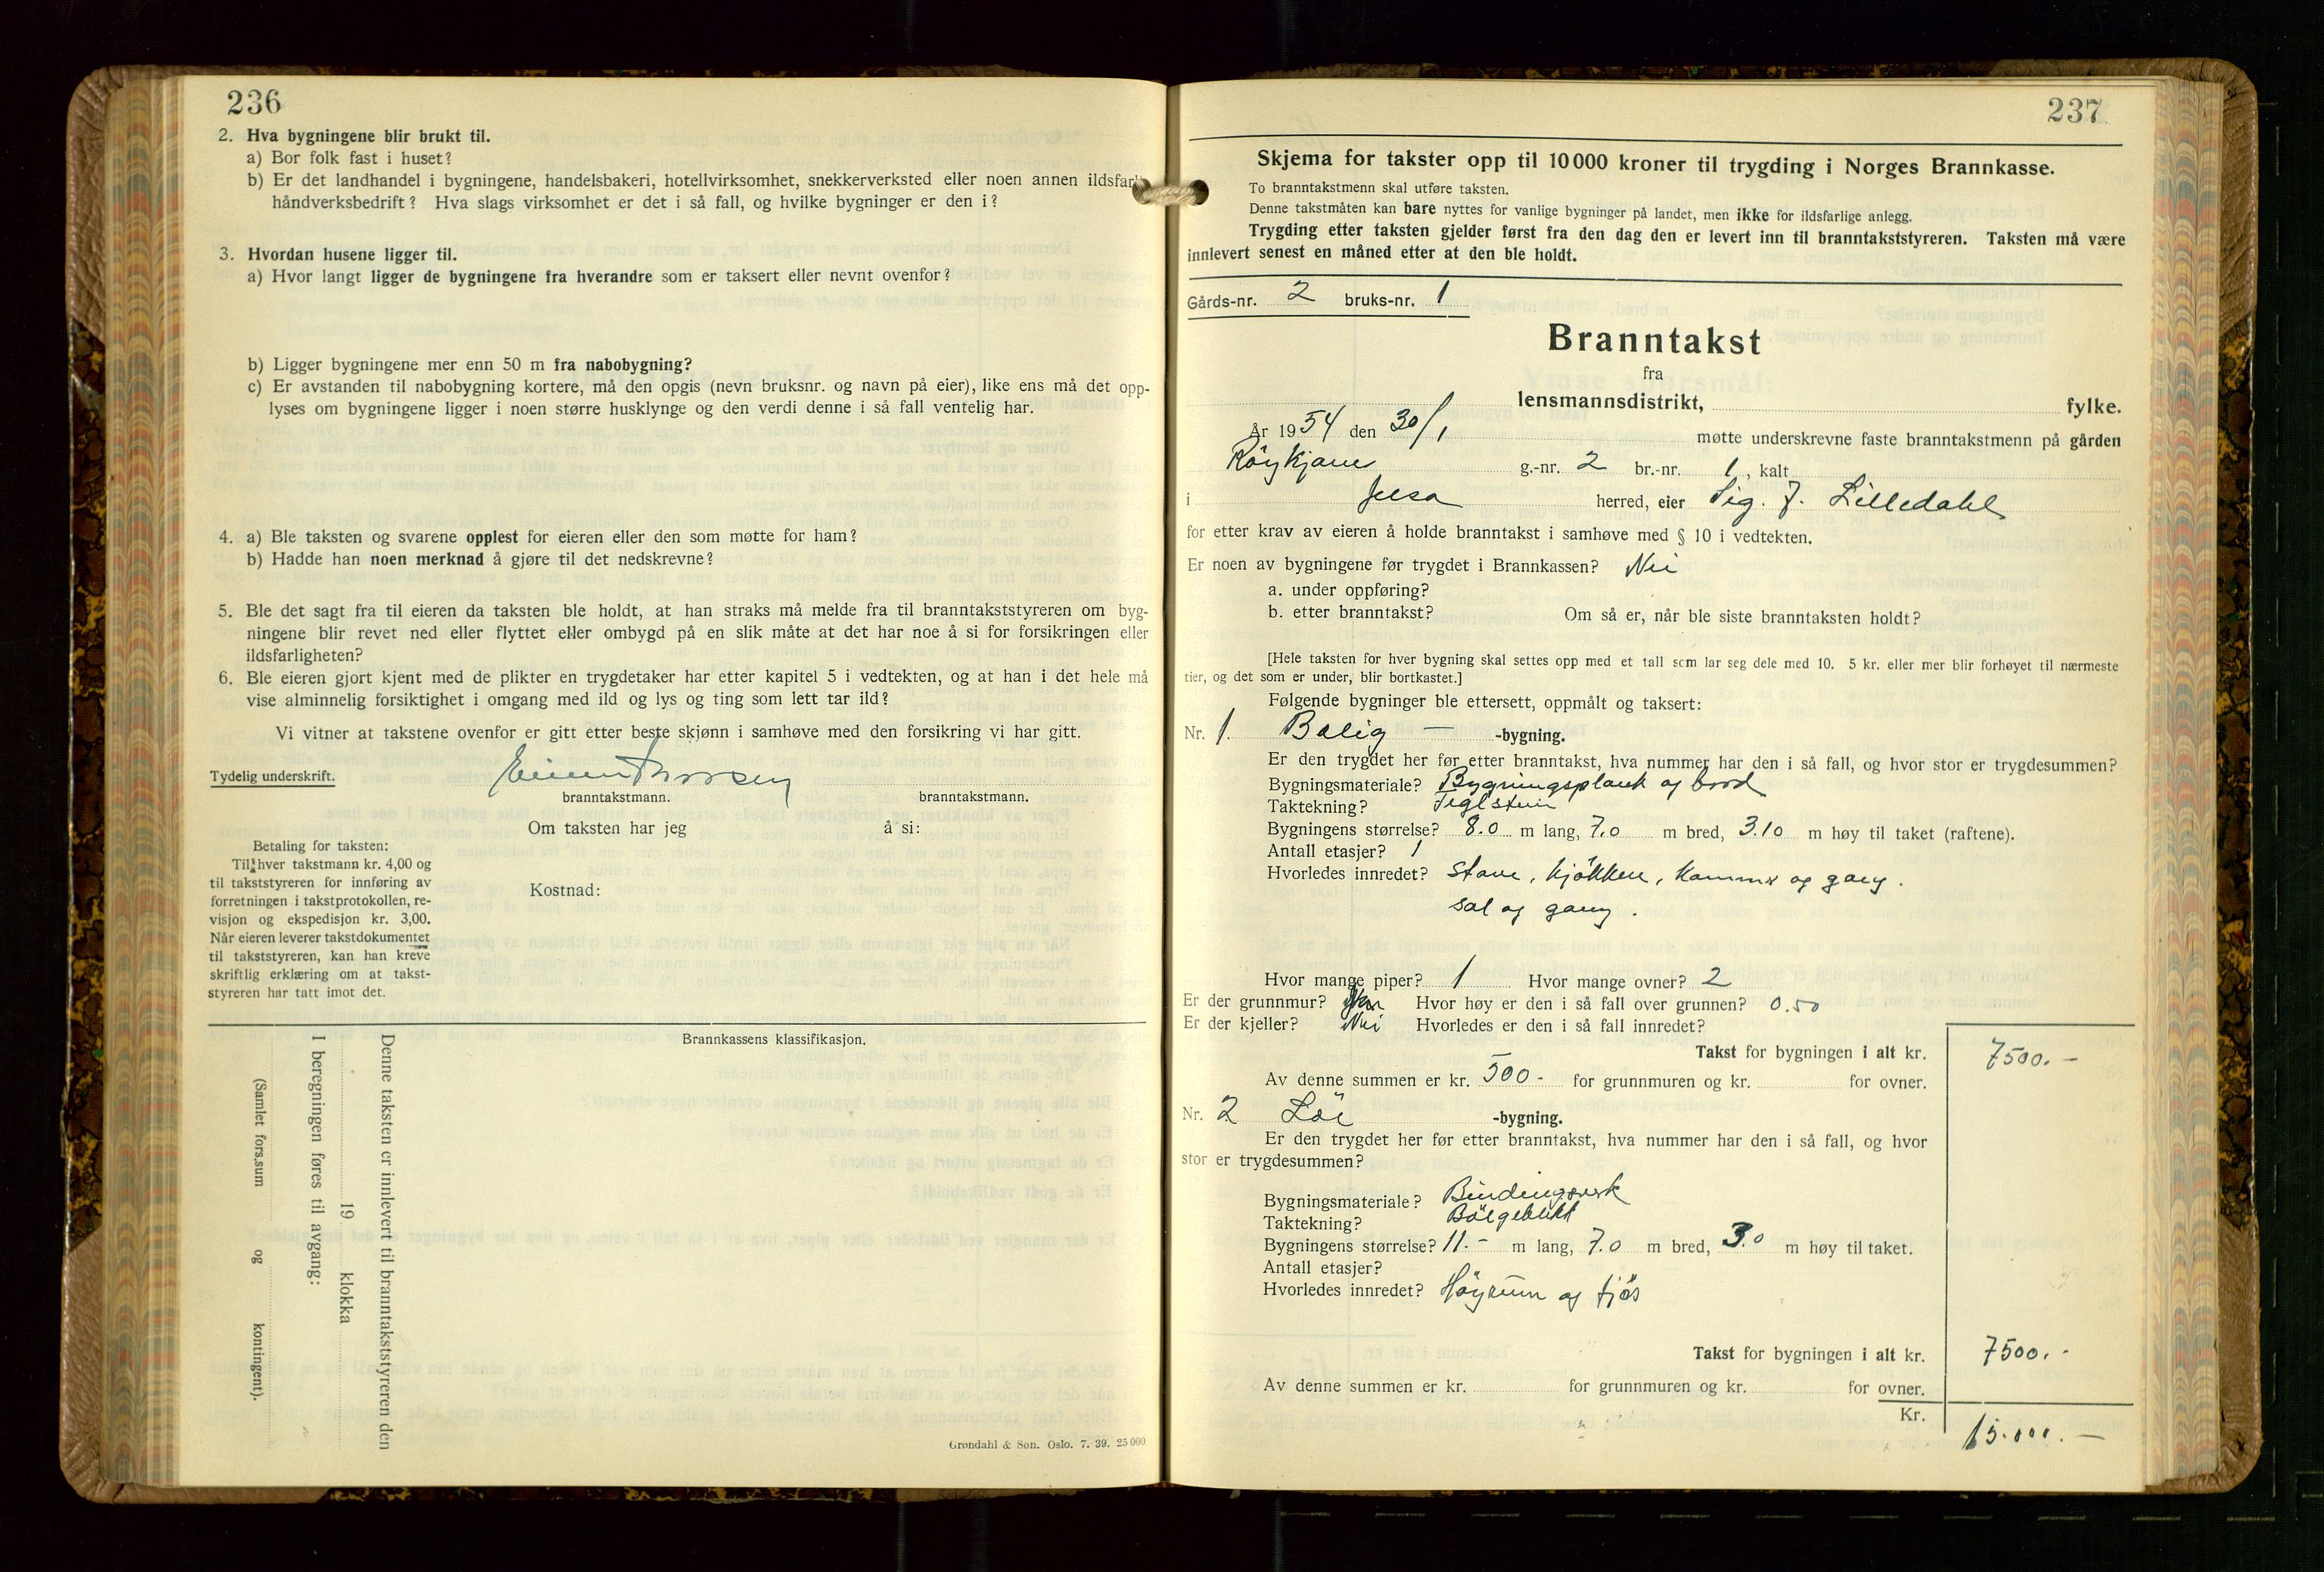 236
2. Hva bygningene blir brukt til.
a) Bor folk fast i huset?
b) Er det landhandel i bygningene, handelsbakeri, hotellvirksomhet, snekkerverksted eller noen annen ildsfarlig
håndverksbedrift? Hva slags virksomhet er det i så fall, og hvilke bygninger er den i?
3. Hvordan husene ligger til.
a) Hvor langt ligger de bygningene fra hverandre som er taksert eller nevnt ovenfor?
b) Ligger bygningene mer enn 50 m fra nabobygning?
c) Er avstanden til nabobygning kortere, må den opgis (nevn bruksnr. og navn på eier), like ens må det opp-
lyses om bygningene ligger i noen større husklynge og den verdi denne i så fall ventelig har.
4. a) Ble taksten og svarene opplest for eieren eller den som møtte for ham?
b) Hadde han noen merknad å gjøre til det nedskrevne?
5. Ble det sagt fra til eieren da taksten ble holdt, at han straks må melde fra til branntakststyreren om byg-
ningene blir revet ned eller flyttet eller ombygd på en slik måte at det har noe å si for forsikringen eller
ildsfarligheten?
6. Ble eieren gjort kjent med de plikter en trygdetaker har etter kapitel 5 i vedtekten, og at han i det hele må
vise alminnelig forsiktighet i omgang med ild og lys og ting som lett tar ild?
Vi vitner at takstene ovenfor er gitt etter beste skjønn i samhøve med den forsikring vi har gitt.
Tydelig underskrift.
branntakstmann. branntakstmann.
Om taksten har jeg å si:
Betaling for taksten:
Til hver takstmann kr. 4,00 og
til takststyreren for innføring av
forretningen i takstprotokollen, re-
visjon og ekspedisjon kr. 3,00.
Når eieren leverer takstdokumentet
til takststyreren, kan han kreve
skriftlig erklæring om at takst-
styreren har tatt imot det.
Kostnad:
Brannkassens klassifikasjon.
Denne taksten er innlevert til branntakststyreren den
19 klokka
I beregningen føres til avgang:
(Samlet fors.sum og kontingent).
Grøndahl & Søn. Oslo. 7. 39. 25 000
237
Skjema for takster opp til 10 000 kroner til trygding i Norges Brannkasse.
To branntakstmenn skal utføre taksten.
Denne takstmåten kan bare nyttes for vanlige bygninger på landet, men ikke for ildsfarlige anlegg.
Trygding etter taksten gjelder først fra den dag den er levert inn til branntakststyreren. Taksten må være
innlevert senest en måned etter at den ble holdt.
Gårds-nr. 2 bruks-nr. 1
Branntakst
fra
lensmannsdistrikt, fylke.
År 1954 den 30/1 møtte underskrevne faste branntakstmenn på gården
g.-nr. 2 br.-nr. 1, kalt
i Jelsa herred, eier Sig. J. Lilledahl
for etter krav av eieren å holde branntakst i samhøve med § 10 i vedtekten.
Er noen av bygningene før trygdet i Brannkassen? Nei
a. under oppføring?
b. etter branntakst? Om så er, når ble siste branntaksten holdt?
[Hele taksten for hver bygning skal settes opp med et tall som lar seg dele med 10. 5 kr. eller mer blir forhøyet til nærmeste
tier, og det som er under, blir bortkastet.]
Følgende bygninger ble ettersett, oppmålt og taksert:
Nr. 1. Bolig — -bygning.
Er den trygdet her før etter branntakst, hva nummer har den i så fall, og hvor stor er trygdesummen?
Bygningsmateriale? Bygningsplank og bord
Taktekning? Teglstein
Bygningens størrelse? 8.0 m lang, 7.0 m bred, 3.10 m høy til taket (raftene).
Antall etasjer? 1
Hvorledes innredet? Stove, kjökken, kammer og gang.
sal og gang.
Hvor mange piper? 1 Hvor mange ovner? 2
Er der grunnmur? Hvor høy er den i så fall over grunnen? 0.50
Er der kjeller? Nei Hvorledes er den i så fall innredet?
Takst for bygningen i alt kr. 7500.-
Av denne summen er kr. 500.- for grunnmuren og kr. for ovner.
Nr. 2 Löe -bygning.
Er den trygdet her før etter branntakst, hva nummer har den i så fall, og hvor
stor er trygdesummen?
Bygningsmateriale? Bindingsverk
Taktekning? Bölgeblikk
Bygningens størrelse? 11.- m lang, 7.0 m bred, 3.0 m høy til taket.
Antall etasjer?
Hvorledes innredet? Höyrum og fjös
Takst for bygningen i alt kr. 7500.-
Av denne summen er kr. for grunnmuren og kr. for ovner.
Kr. 15.000.-